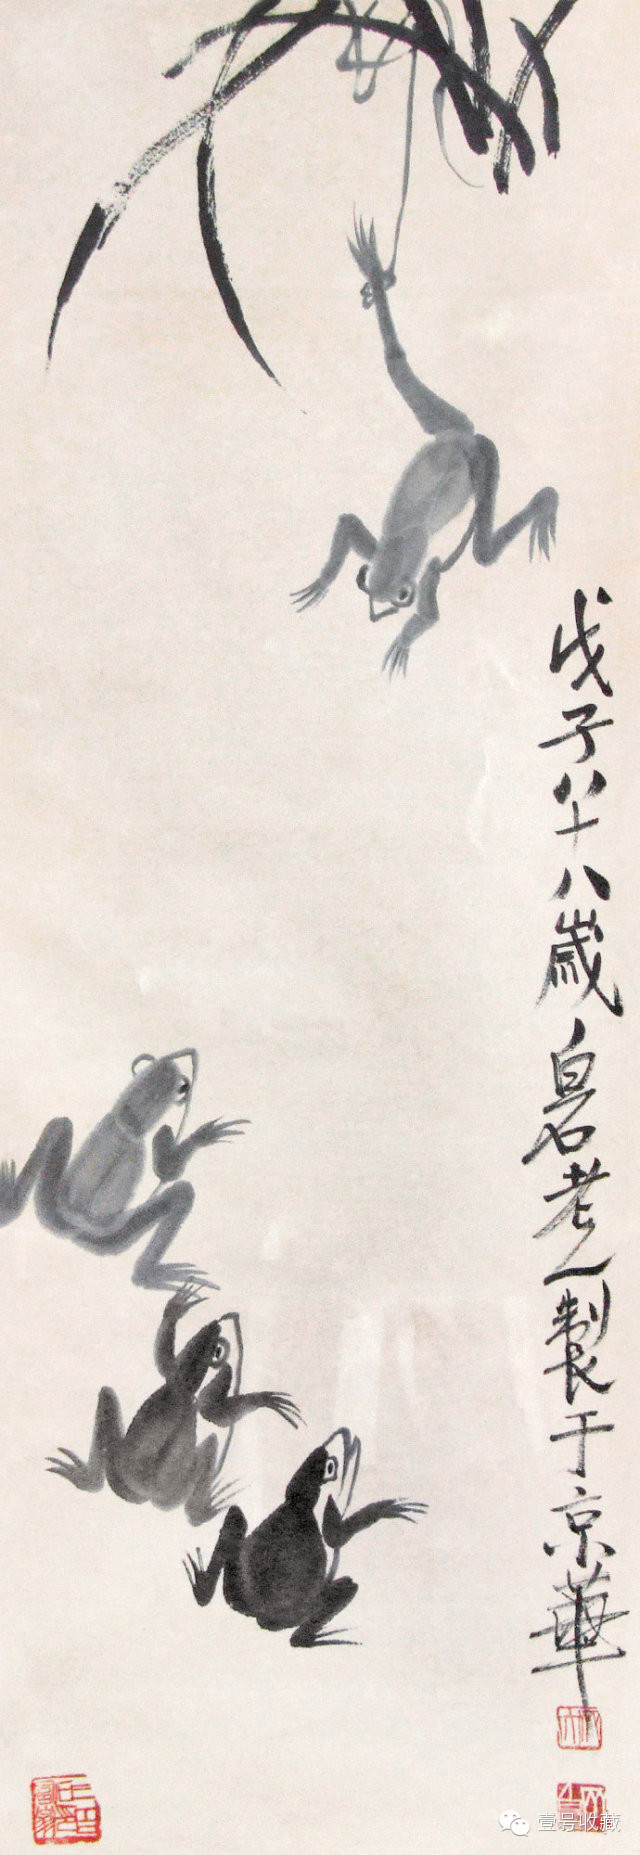 戊子八十八歲白石老人製于京華
壹号收藏